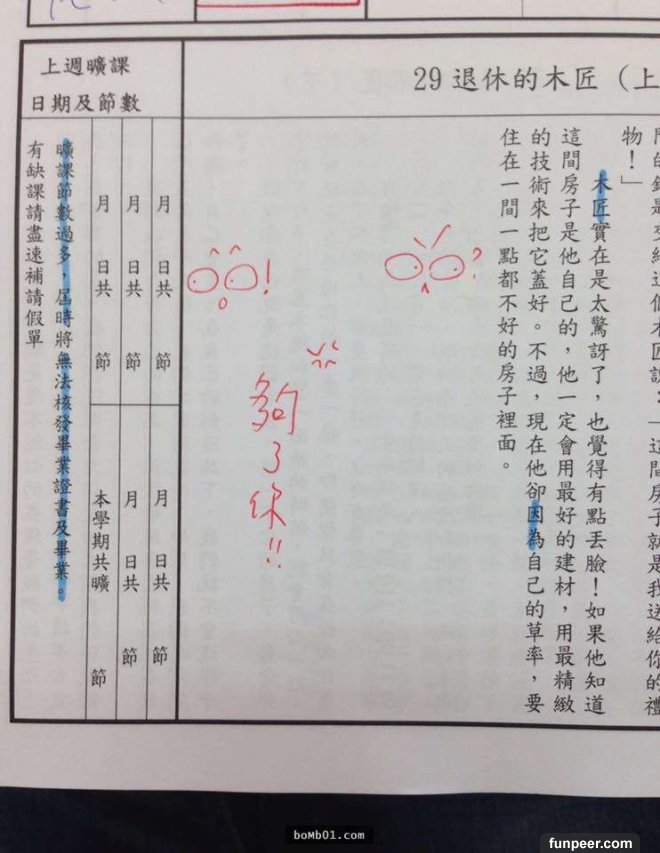 29 退休的木匠（上
這間房子就是我送給你的禮
物！」
木匠實在是太驚訝了，也覺得有點丟臉！如果他知道
這間房子是他自己的，他一定會用最好的建材，用最精緻
的技術來把它蓋好。不過，現在他卻因為自己的草率，要
住在一間一點都不好的房子裡面。
?
!
夠了你!!
上週曠課
日期及節數
月 日共 節
月 日共 節
月 日共 節
月 日共 節
月 日共 節
本學期共曠 節
曠課節數過多，屆時將無法核發畢業證書及畢業。
有缺課請盡速補請假單
boMb01.com
funpeer.com